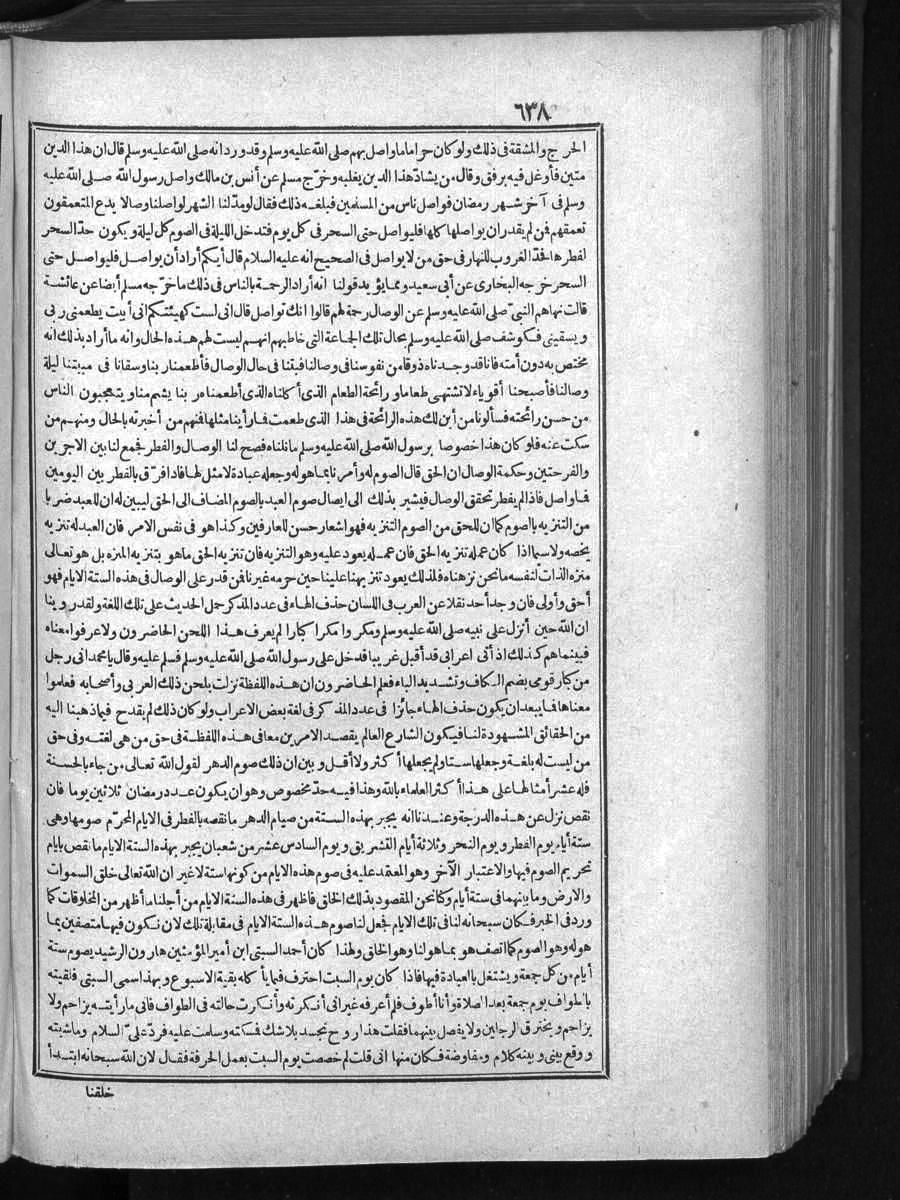 ٦٣٨
الحرج والمشقة فى ذلك ولو كان حراما ما واصل بهم صلى الله عليه وسلم وقد ورد انه صلى الله عليه وسلم قال ان هذا الدين
متين فأوغل فيه برفق وقال من يشاد هذا الدين يغلبه وخرّج مسلم عن أنس بن مالك واصل رسول الله صلى الله عليه
وسلم فى آخر شهر رمضان فواصل ناس من المسلمين فبلغه ذلك فقال لو مدّ لنا الشهر لواصلنا وصالا يدع المتعمقون
تعمقهم فن لم يقدر ان يواصلها كلها فليواصل حتى السحر فى كل يوم فتدخل الليلة فى الصوم كل ليلة ويكون حدّ السحر
لفطرها لحدّ الغروب للنهار فى حق من لا يواصل فى الصحيح انه عليه السلام قال أيكم أراد أن يواصل فليواصل حتى
السحر خرجه البخارى عن أبى سعيد ومما يؤيد قولنا انه أراد الرحمة بالناس فى ذلك ما خرّجه مسلم أيضا عن عائشة
قالت نهاهم النبىّ صلى الله عليه وسلم عن الوصال رحمة لهم قالوا انك تواصل قال انى لست كهيئتكم انى أبيت يطعمنى ربى
ويسقينى فكوشف صلى الله عليه وسلم بحال تلك الجماعة التى خاطبهم انهم ليست لهم هذه الحال وانه ما أراد بذلك انه
مختص به دون أمته فانا قد وجدناه ذوقا من نفوسنا فى وصالنا فبتنا فى حال الوصال فأطعمنا ربنا وسقانا فى مبيتنا ليلة
وصالنا فأصبحنا أقوياء لا نشتهى طعاما ورائحة الطعام الذى أكلناه الذى أطعمناه ربنا يشم منا ويتعجبون الناس
من حسن رائحته فسألونا من أين لك هذه الرائحة فى هذا الذى طعمت فارأينا مثلها فنهم من أخبرته بالحال ومنهم من
سكت عنه فلو كان هذا خصوصا برسول الله صلى الله عليه وسلم ما نلناه فصح لنا الوصال والفطر فجمع لنا بين الاجرين
والفرحتين وحكمة الوصال ان الحق قال الصوم له وأمرنا بما هو له وجعله عبادة لا مثل لها فاذا فرّق بالفطر بين اليومين
فما واصل فاذا لم يفطر تحقق الوصال فيشير بذلك الى ايصال صوم العبد بالصوم المضاف الى الحق ليبين له ان للعبد ضربا
من التنزيه بالصوم كما ان للحق من الصوم التنزيه فهو اشعار حسن للعارفين وكذا هو فى نفس الامر فان العبد له تنزيه
يخصه ولا سيما اذا كان عمله تنزيه الحق فان عمله يعود عليه وهو التنزيه فان تنزيه الحق ما هو بتنزيه المنزه بل هو تعالى
منزه الذات لنفسه ما نحن نزهناه فلذلك يعود تنزيهنا علينا حين حرمه غيرنا فن قدر على الوصال فى هذه الستة الايام فهو
أحق وأولى فان وجد أحد نقلا عن العرب فى اللسان حذف الهاء فى عدد المذكر حمل الحديث على تلك اللغة ولقد روينا
ان الله حين أنزل على نبيه صلى الله عليه وسلم ومكروا مكرا كبارا لم يعرف هذا اللحن الحاضرون ولا عرفوا معناه
فبينما هم كذلك اذ أتى اعرابى قد أقبل غريبا فدخل على رسول الله صلى الله عليه وسلم فسلم عليه وقال يا محمد انى رجل
من كبار قومى بضم الكاف وتشديد الباء فعلم الحاضرون ان هذه اللفظة نزلت بلحن ذلك العربى وأصحابه فعلموا
معناها فما يبعد ان يكون حذف الهاء جائزا فى عدد المذكر فى لغة بعض الاعراب ولو كان ذلك لم يقدح فيما ذهبنا اليه
من الحقائق المشهودة لنا فيكون الشارع العالم يقصد الامرين معا فى هذه اللفظة فى حق من هى لغته وفى حق
من ليست له بلغة وجعلها ستا ولم يجعلها أكثر ولا أقل وبين ان ذلك صوم الدهر لقول الله تعالى من جاء بالحسنة
فله عشر أمثالها على هذا أكثر العلماء بالله وهذا فيه حدّ مخصوص وهو ان يكون عدد رمضان ثلاثين يوما فان
نقص نزل عن هذه الدرجة وعندنا انه يجبر بهذه الستة من صيام الدهر ما نقصه بالفطر فى الايام المحرّم صومها وهى
ستة أيام يوم الفطر ويوم النحر وثلاثة أيام التشريق ويوم السادس عشر من شعبان يجبر بهذه الستة الايام ما نقص بايام
تحريم الصوم فيها والاعتبار الآخر وهو المعتمد عليه فى صوم هذه الايام من كونها ستة لا غير ان الله تعالى خلق السموات
والارض وما بينهما فى ستة أيام وكنا نحن المقصود بذلك الخلق فاظهر فى هذه الستة الايام من أجلنا ما أظهر من المخلوقات كما
ورد فى الخبر فكان سبحانه لنا فى تلك الايام فجعل لنا صوم هذه الستة الايام فى مقابلة تلك لان نكون فيها متصفين بما
هو له وهو الصوم كما اتصف هو بما هو لنا وهو الخلق ولهذا كان أحمد السبتى ابن أمير المؤمنين هارون الرشيد يصوم ستة
أيام من كل جمعة ويشتغل بالعبادة فيها فاذا كان يوم السبت احترف فيما يأكله بقية الاسبوع وبهذا سمى السبتى فلقيته
بالطواف يوم جمعة بعد الصلاة وأنا أطوف فلم أعرفه غير انى أنكرته وأنكرت حالته فى الطواف فانى ما رأيته يزاحم ولا
يزاحم ويخترق الرجلين ولا يفصل بينهما فقلت هذا روح تجسد بلا شك فسكته وسلمت عليه فردّ علىّ السلام وماشيته
ووقع بينى وبينه كلام ومفاوضة فكان منها انى قلت لم خصصت يوم السبت بعمل الحرفة فقال لان الله سبحانه ابتدأ
خلقنا